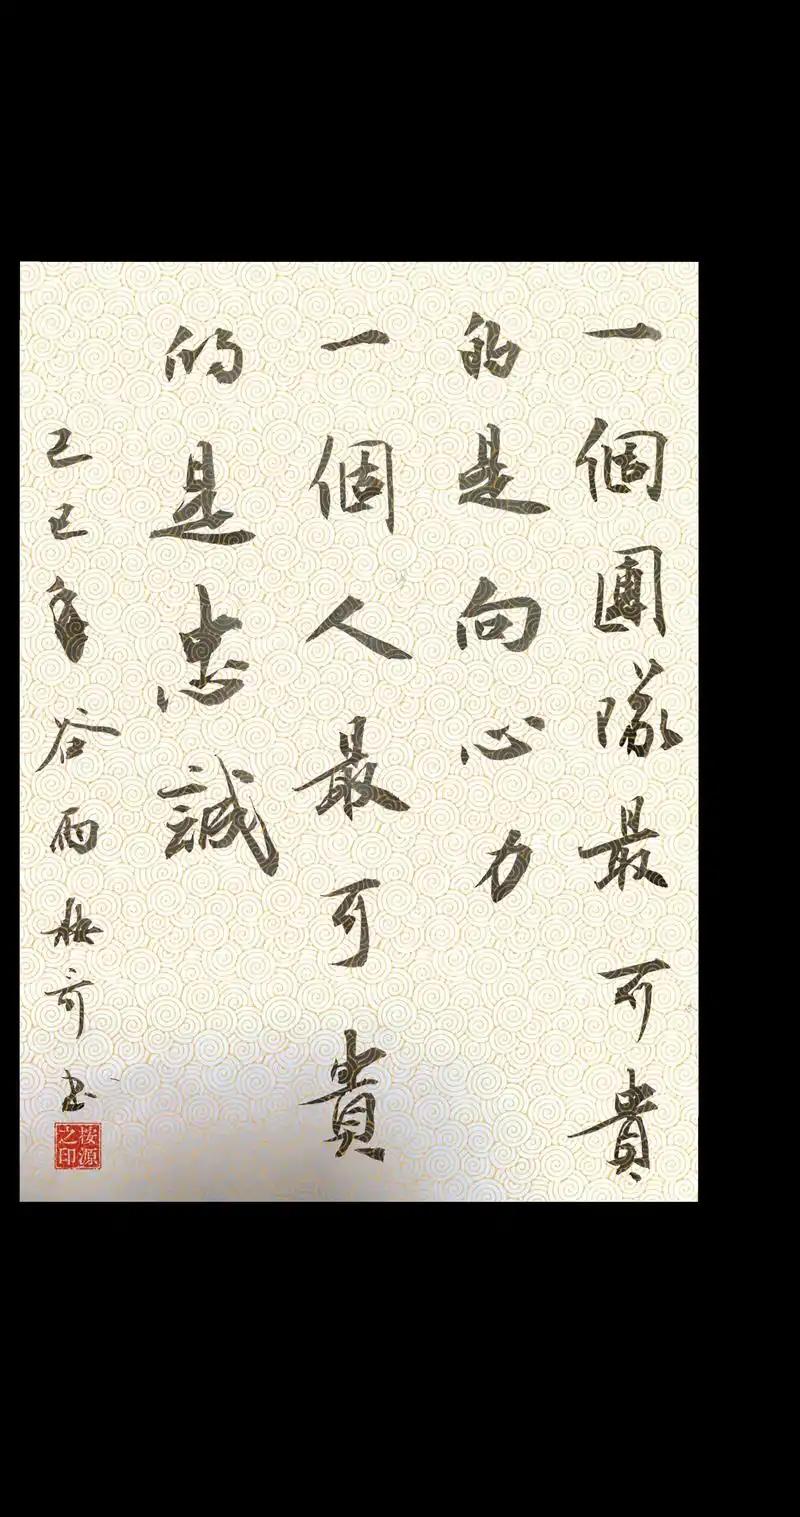 一個團隊最可貴
的是向心力
一個人最可貴
的是忠誠
乙巳年谷雨梅奇书
桉源之印